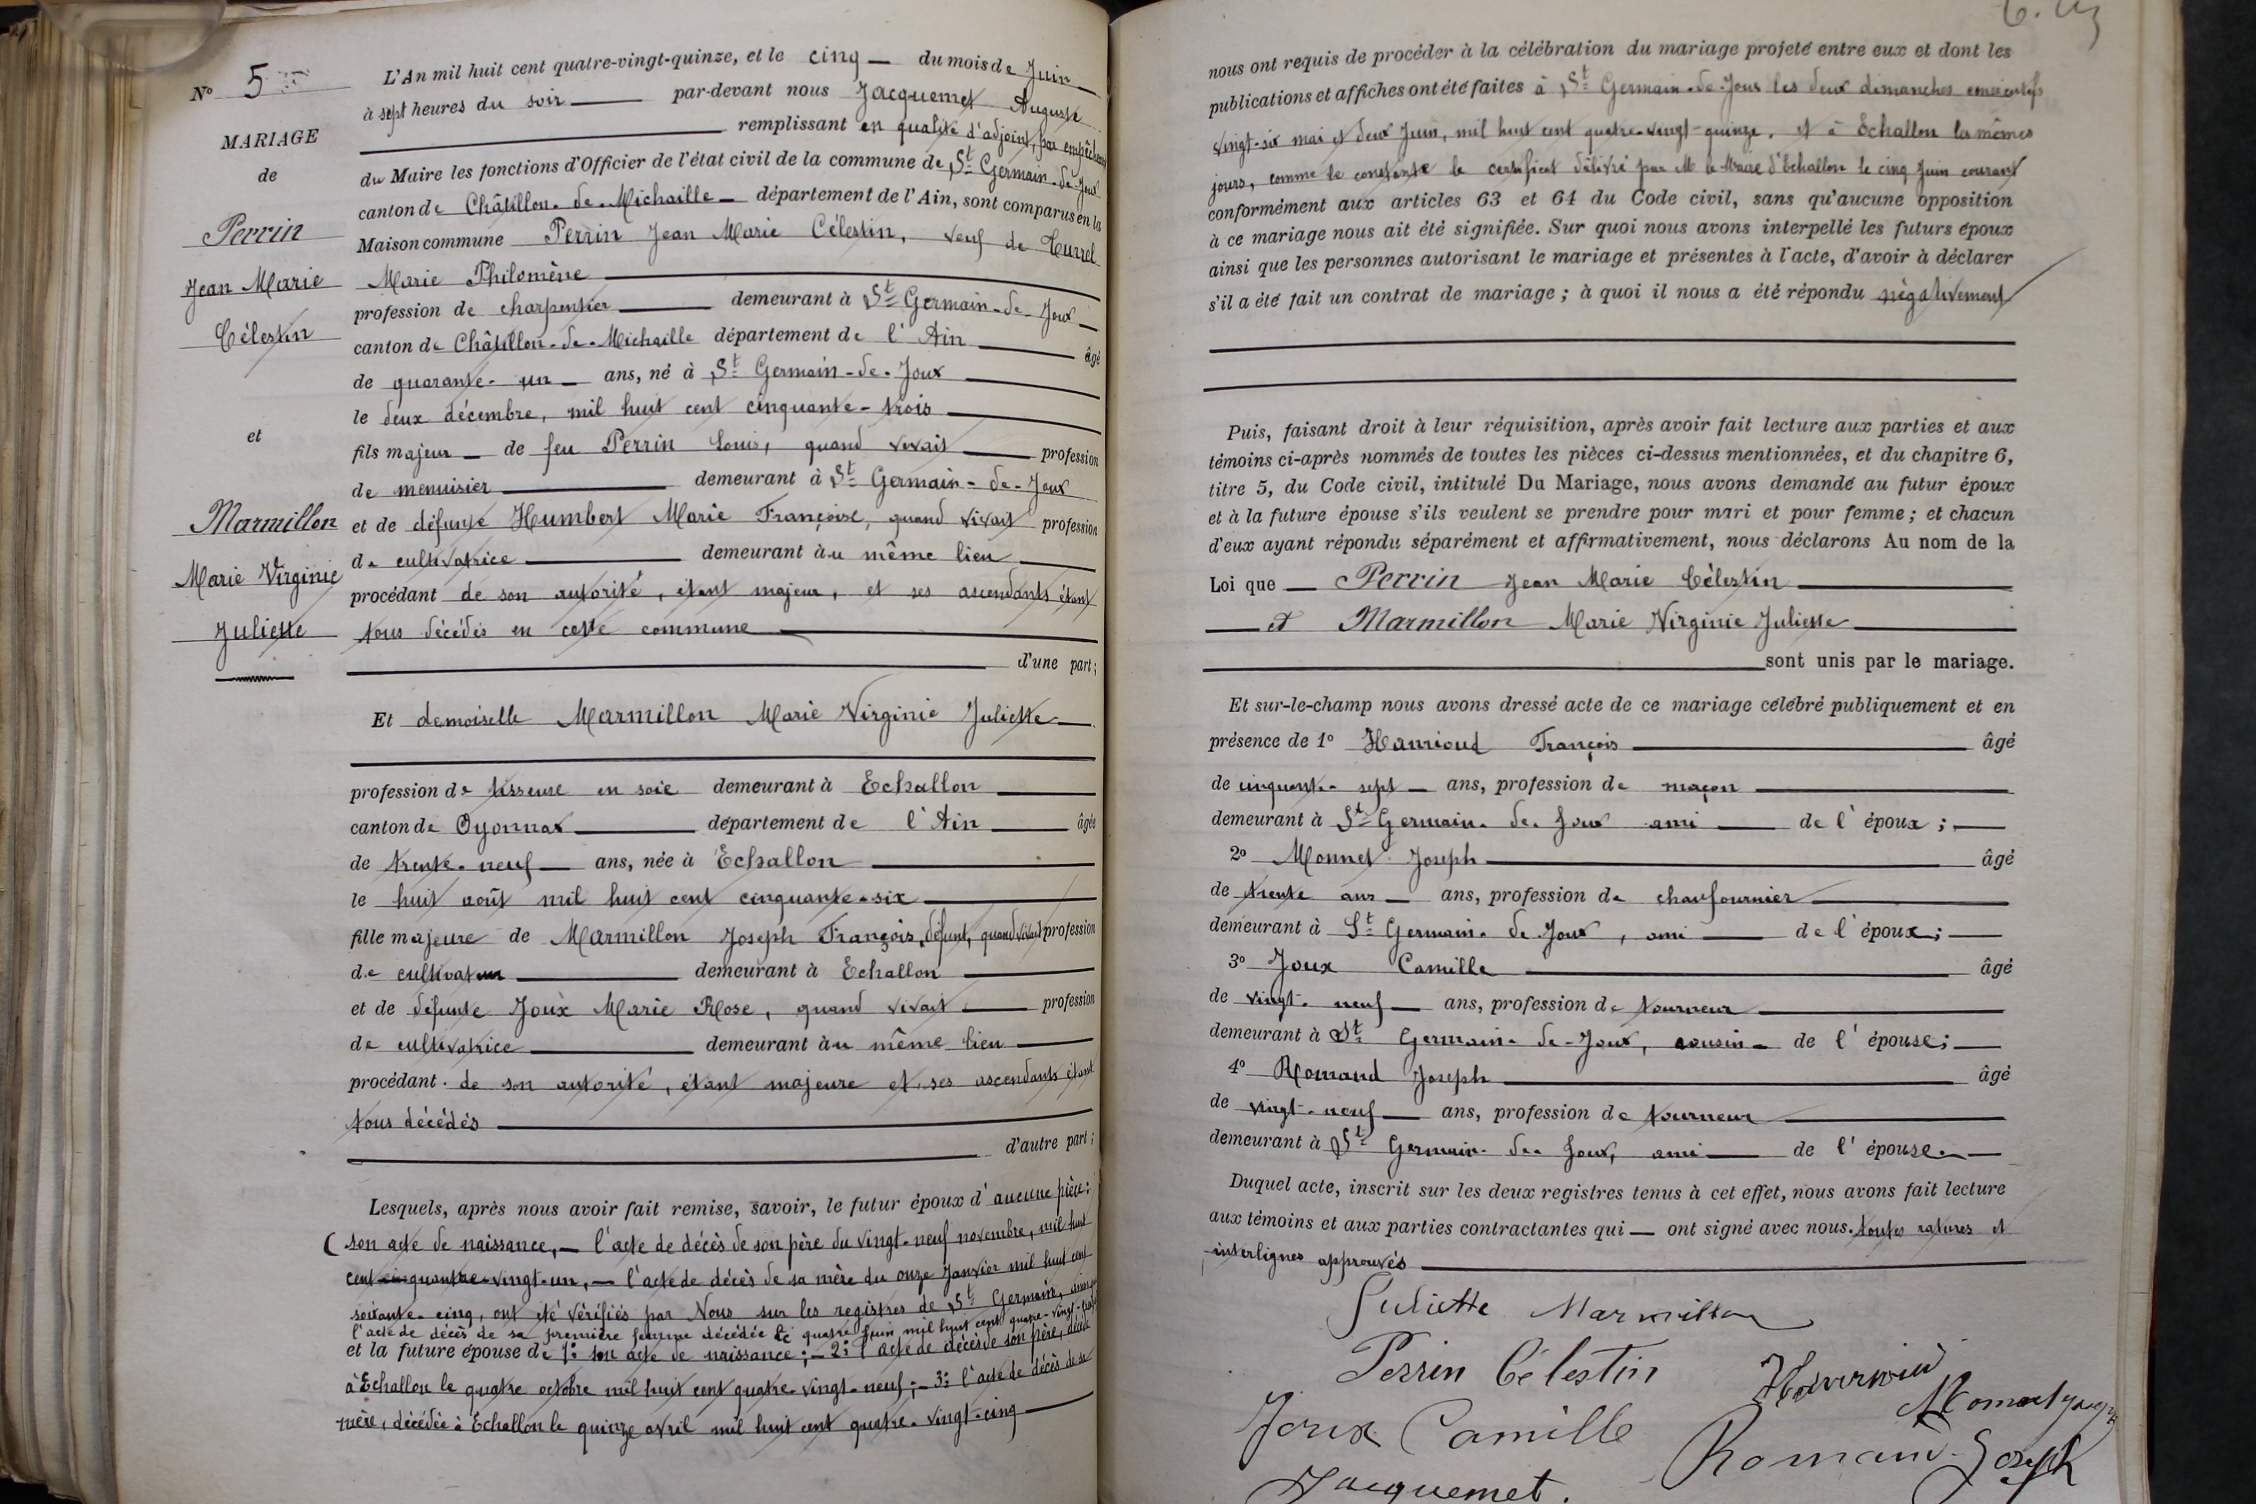 N° 5
MARIAGE
de
Perrin
Jean Marie
Célestin
et
Marmillon
Marie Virginie
Juliette
L'An mil huit cent quatre-vingt-quinze, et le cinq du mois de Juin
à sept heures du soir par-devant nous Jacquemet Auguste
remplissant en qualité d'adjoint, par empêchement
du Maire les fonctions d'Officier de l'état civil de la commune de St Germain-de-Joux
canton de Châtillon-de-Michaille département de l'Ain, sont comparus en la
Maison commune Perrin Jean Marie Célestin, veuf de
Marie Philomène
profession de charpentier demeurant à St Germain-de-Joux
canton de Châtillon-de-Michaille département de l'Ain âgé
de quarante-un ans, né à St Germain-de-Joux
le deux décembre, mil huit cent cinquante-trois
fils majeur de feu Perrin Louis, quand vivait profession
de menuisier demeurant à St Germain-de-Joux
et de défunte Humbert Marie Françoise, quand vivait profession
de cultivatrice demeurant au même lieu
procédant de son autorité, étant majeur, et ses ascendants étant
tous décédés en cette commune
d'une part;
Et demoiselle Marmillon Marie Virginie Juliette
profession de tisseuse en soie demeurant à Echallon
canton de Oyonnax département de l'Ain âgée
de trente-neuf ans, née à Echallon
le huit août mil huit cent cinquante-six
fille majeure de Marmillon Joseph François, défunt, quand vivait profession
de cultivateur demeurant à Echallon
et de défunte Joux Marie Rose, quand vivait profession
de cultivatrice demeurant au même lieu
procédant de son autorité, étant majeure et ses ascendants étant
tous décédés
d'autre part;
Lesquels, après nous avoir fait remise, savoir, le futur époux d'aucune pièce:
(son acte de naissance, l'acte de décès de son père du vingt-neuf novembre, mil huit
cent quatre-vingt-un, l'acte de décès de sa mère du onze Janvier mil huit cent
soixante-cinq, ont été vérifiés par Nous sur les registres de St Germain, ainsi que
l'acte de décès de sa première femme décédée le quatre Juin mil huit cent quatre-vingt-
et la future épouse de 1° son acte de naissance; 2° l'acte de décès de son père, décédé
à Echallon le quatre octobre mil huit cent quatre-vingt-neuf; 3° l'acte de décès de sa
mère, décédée à Echallon le quinze avril mil huit cent quatre-vingt-cinq
nous ont requis de procéder à la célébration du mariage projeté entre eux et dont les
publications et affiches ont été faites à St Germain-de-Joux les deux dimanches consécutifs
vingt-six mai et deux Juin, mil huit cent quatre-vingt-quinze, et à Echallon les mêmes
jours, comme le constate le certificat délivré par M le Maire d'Echallon le cinq Juin courant
conformément aux articles 63 et 64 du Code civil, sans qu'aucune opposition
à ce mariage nous ait été signifiée. Sur quoi nous avons interpellé les futurs époux
ainsi que les personnes autorisant le mariage et présentes à l'acte, d'avoir à déclarer
s'il a été fait un contrat de mariage; à quoi il nous a été répondu négativement
Puis, faisant droit à leur réquisition, après avoir fait lecture aux parties et aux
témoins ci-après nommés de toutes les pièces ci-dessus mentionnées, et du chapitre 6,
titre 5, du Code civil, intitulé Du Mariage, nous avons demandé au futur époux
et à la future épouse s'ils veulent se prendre pour mari et pour femme; et chacun
d'eux ayant répondu séparément et affirmativement, nous déclarons Au nom de la
Loi que Perrin Jean Marie Célestin
et Marmillon Marie Virginie Juliette
sont unis par le mariage.
Et sur-le-champ nous avons dressé acte de ce mariage célébré publiquement et en
présence de 1° Hanrioud François âgé
de cinquante-sept ans, profession de maçon
demeurant à St Germain-de-Joux ami de l'époux;
2° Monnet Joseph âgé
de trente ans ans, profession de chaufournier
demeurant à St Germain-de-Joux, ami de l'époux;
3° Joux Camille âgé
de vingt-neuf ans, profession de tourneur
demeurant à St Germain-de-Joux, cousin de l'épouse;
4° Romand Joseph âgé
de vingt-neuf ans, profession de tourneur
demeurant à St Germain-de-Joux, ami de l'épouse
Duquel acte, inscrit sur les deux registres tenus à cet effet, nous avons fait lecture
aux témoins et aux parties contractantes qui ont signé avec nous. toutes ratures et
interlignes approuvés
Juliette Marmillon
Perrin Célestin
Joux Camille
Romand Joseph
Jacquemet.